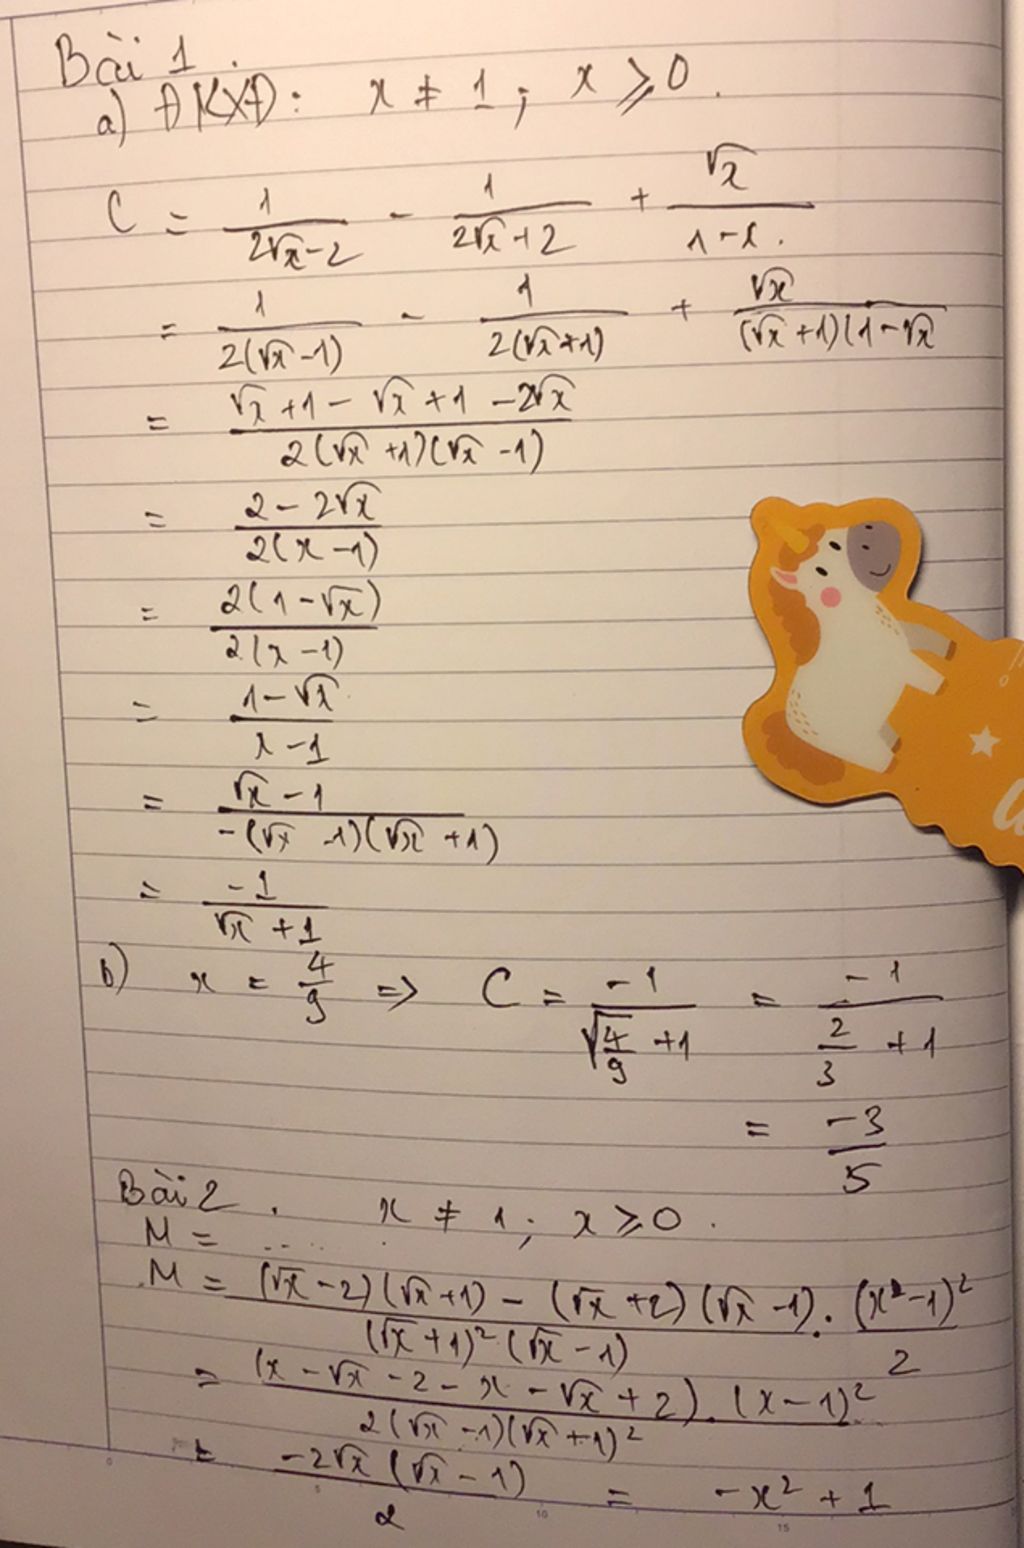 Bài 1.
a) ĐKXĐ: x ≠ 1; x ≥ 0.
C = 1/(2√x - 2) - 1/(2√x + 2) + √x/(1 - x).
= 1/(2(√x - 1)) - 1/(2(√x + 1)) + √x/((√x + 1)(1 - √x
= (√x + 1 - √x + 1 - 2√x)/(2(√x + 1)(√x - 1))
= (2 - 2√x)/(2(x - 1))
= 2(1 - √x)/(2(x - 1))
= (1 - √x)/(x - 1)
= (√x - 1)/(-(√x - 1)(√x + 1))
= -1/(√x + 1)
b) x = 4/9 => C = -1/(√(4/9) + 1) = -1/(2/3 + 1)
= -3/5
Bài 2. x ≠ 1; x ≥ 0.
M = .....
M = ((√x - 2)(√x + 1) - (√x + 2)(√x - 1))/((√x + 1)²(√x - 1)) . (x - 1)²/2
= (x - √x - 2 - x - √x + 2).(x - 1)²/(2(√x - 1)(√x + 1)²)
= -2√x(√x - 1)/2 = -x² + 1